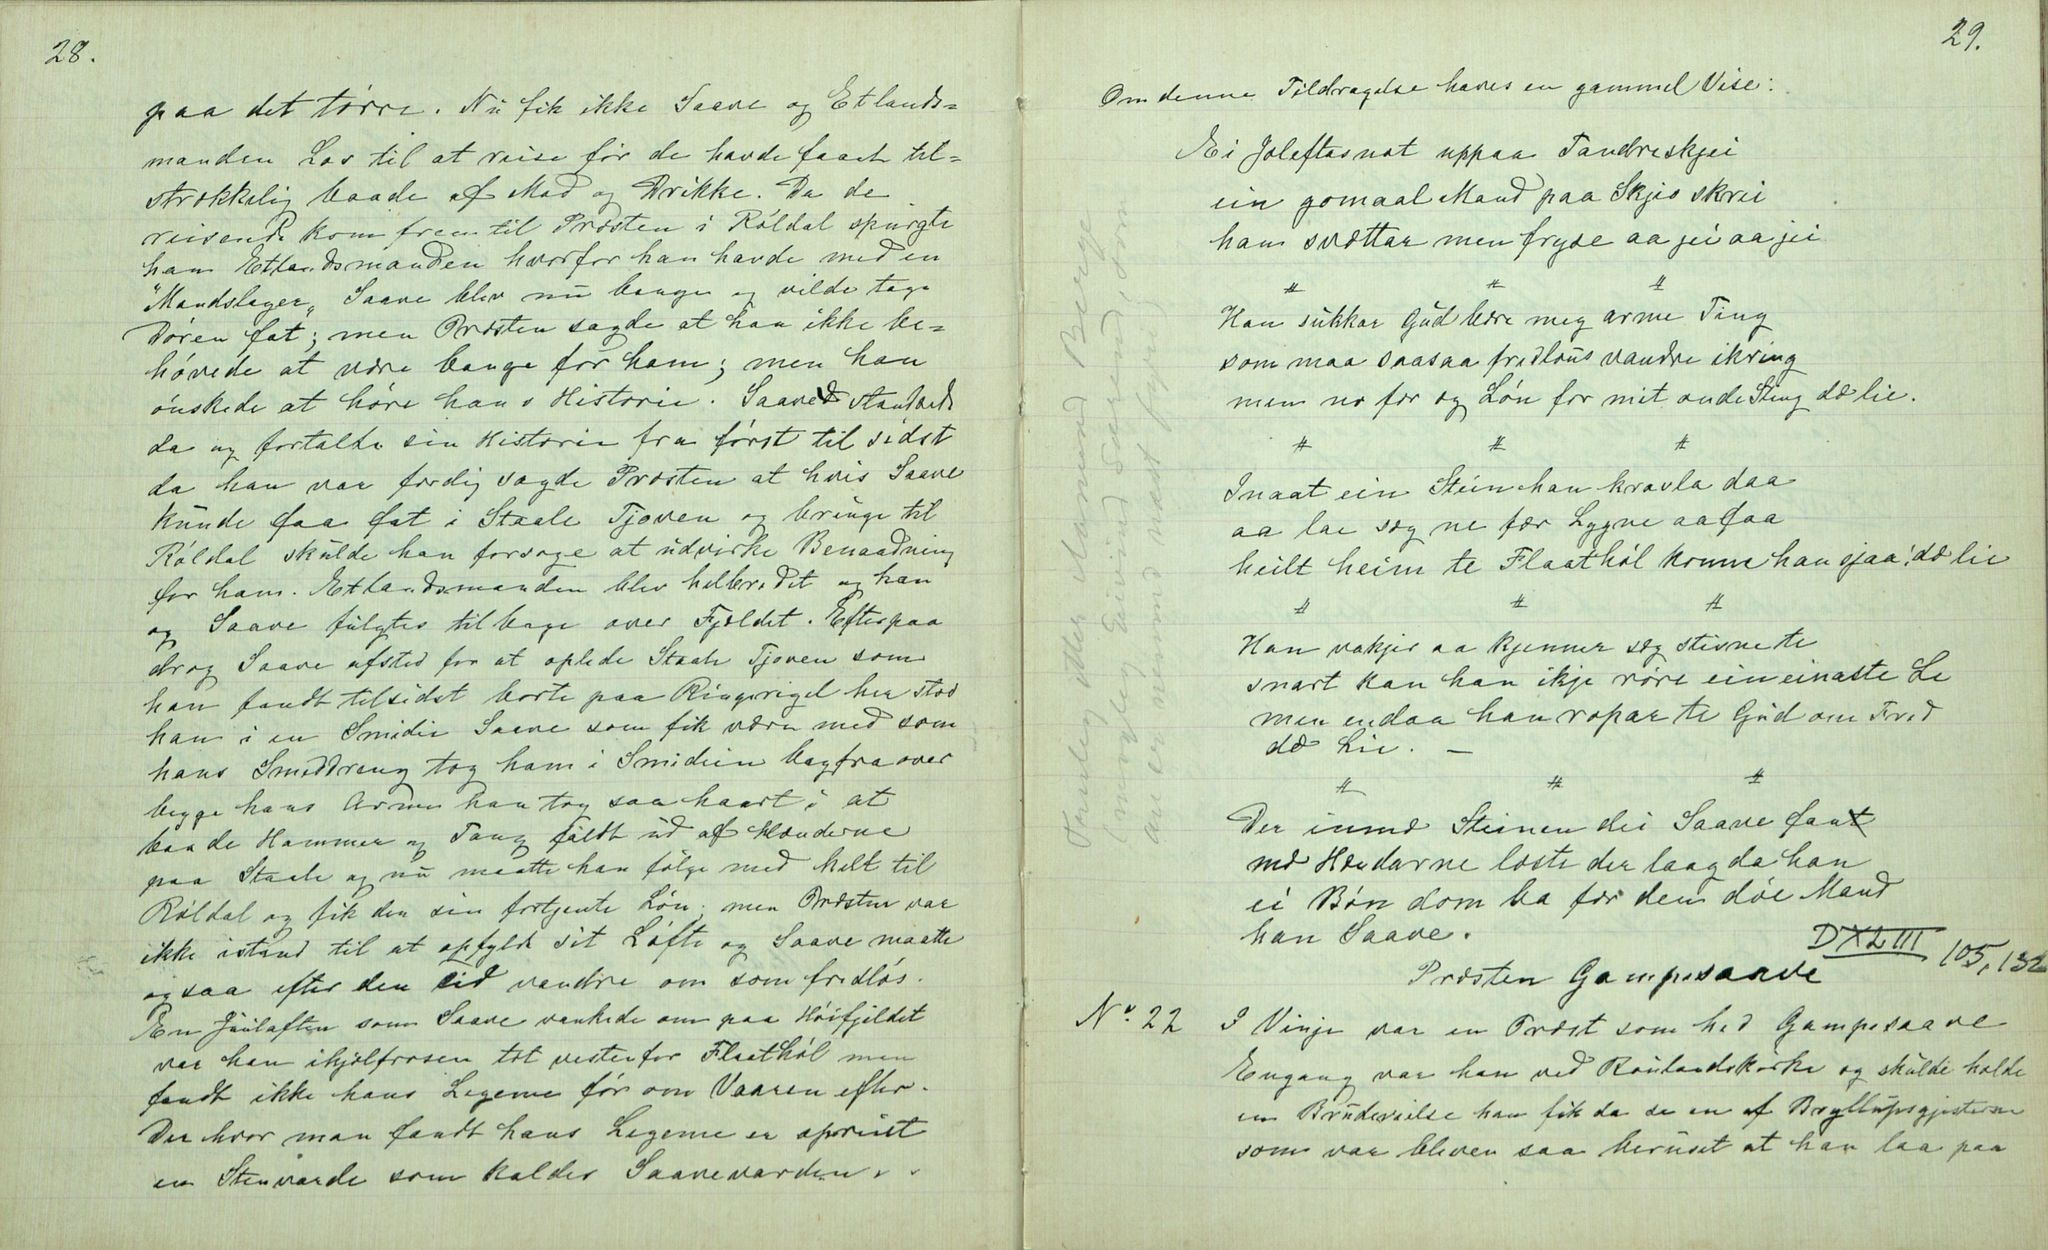 28.
paa det törre. Nu fik ikke Saave og Etlands=
manden Lov til at reise för de havde faaet til=
strækkelig baade af Mad og Drikke. Da de
reisende kom frem til Præsten i Röldal spurgte
han Etlandsmanden hvorfor han havde med en
"Mandslager„ Saave blev nu bange og vilde tage
Dören fat; men Præsten sagde at han ikke be=
hövede at være bange for ham; men han
önskede at höre hans Historie. Saave standsede
da og fortalte sin Historie fra först til sidst
da han var færdig sagde Præsten at hvis Saave
kunde faa fat i Staale Tjoven og bringe til
Röldal skulde han forsøge at udvirke Benaadning
for ham. Etlandsmanden blev helbredet og han
og Saave fulgtes tilbage over Fjeldet. Efterpaa
drog Saave afsted for at oplede Staale Tjoven som
han fandt tilsidst borte paa Ringerigel her stod
han i en Smidie Saave som fik være med som
hans Smeddreng tog ham i Smidien bagfra over
begge hans Arme han tog saa haardt i at
baade Hammer og Tang faldt ud af Hænderne
paa Staale og nu maatte han fölge med helt til
Röldal og fik den sin fortjente Lön; men Præsten var
ikke istand til at opfylde sit Löfte og Saave maatte
ogsaa efter den tid vandre om som fredlös.
En Juulaften som Saave vankede om paa Höifjeldet
var han ihjelfrosen tæt vestenfor Flaathöl men
fandt ikke hans Legeme för om Vaaren efter.
Der hvor man fandt hans Legeme er opreist
en Stenvarde som kaldes Saavevarden.
29.
Om denne Tildragelse haves en gammel Vise:
Ei Joleftasnat uppaa Tandreskjei
ein gomaal Mand paa Skjio skrei
han svættar men fryse aa jei aa jei
# # #
Han sukkar Gud bære meg arme Ting
som maa saasaa fredlaus vandre ikring
men no fær eg Lön for mit onde Sting dæ lie.
# # #
Inaat ein Stein han kravla daa
aa lae sæg ne fær Lygne aa faa
heilt heim te Flaathöl komme han sjaa! dæ lie
# # #
Han vakjer aa kjenner sæg stivne te
snart kan han ikje röre ein einaste Le
men endaa han ropar te Gud om Fred
dæ Lie. —
# # #
Der inmæ Steinen dei Saave fant
mæ Hændarne læste der laag da han
ei Bön dom ba før den döe Mand
han Saave.
DXLIII 105, 132
Præsten Gampesaave
No. 22 I Vinje var en Præst som hed Gampesaave
Engang var han ved Raulandskirke og skulde holde
en Brudevielse han fik da se en af Bryllupsgjesterne
som var bleven saa beruset at han laa paa